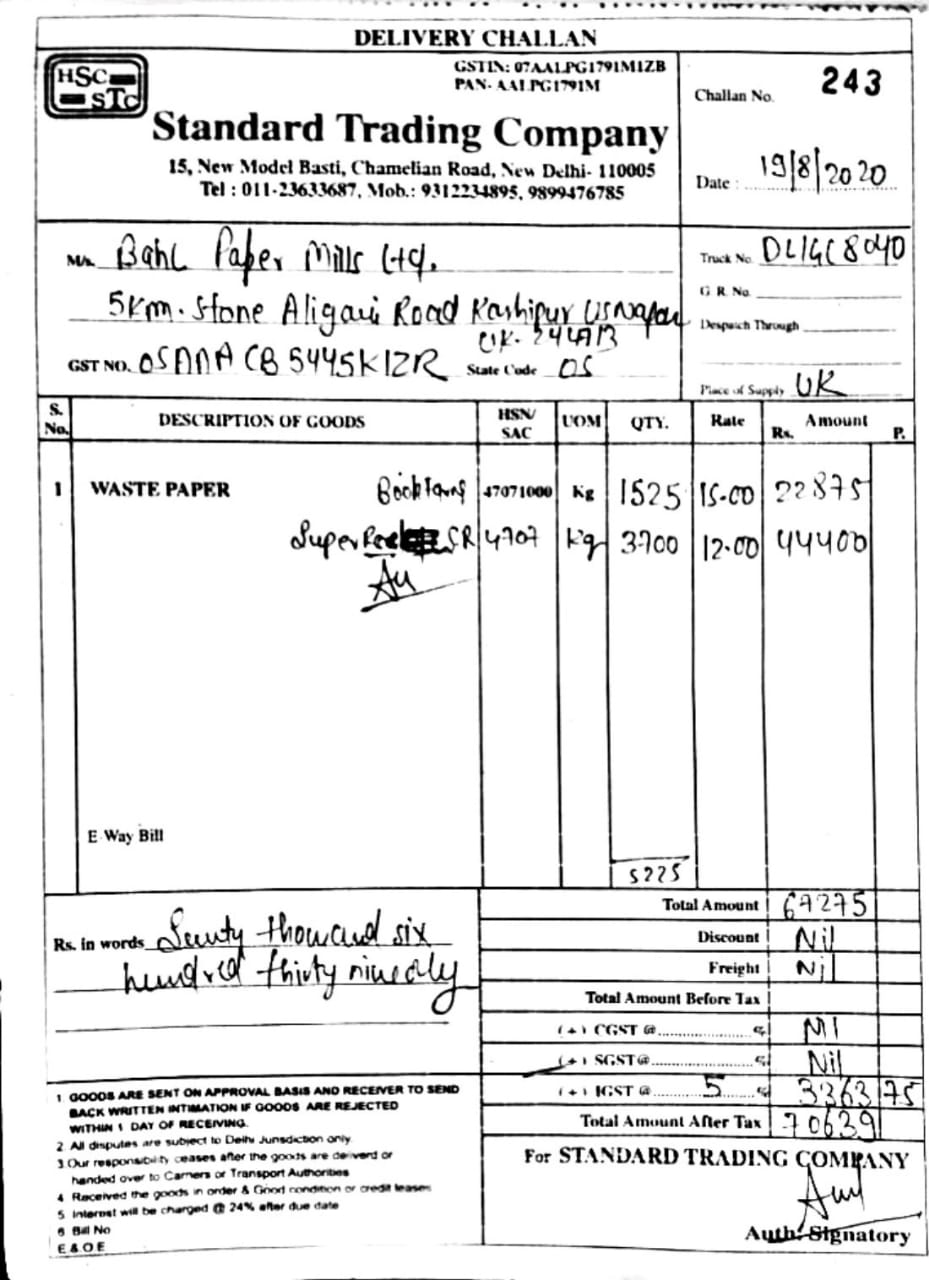 DELIVERY CHALLAN
HSC
STC
GSTIN: 07AALPG1791M1ZB
PAN- AALPG1791M
Standard Trading Company
15, New Model Basti, Chamelian Road, New Delhi- 110005
Tel : 011-23633687, Mob.: 9312234895, 9899476785
Challan No. 243
Date : 19/8/2020
M/s. Bahl Paper Mills Ltd.
5km. Stone Aliganj Road Kashipur USNagar
UK-
GST NO. 05AAACB5445K1ZR State Code 05
Truck No. DL1GC8040
G.R. No.
Despatch Through
Place of Supply UK
S. No. DESCRIPTION OF GOODS HSN/ SAC UOM QTY. Rate Amount Rs. P.
1 WASTE PAPER 47071000 Kg 1525 15.00 22875
Super SR 4707 Kg 3700 12.00 44400
E Way Bill
5225
Total Amount 67275
Discount Nil
Freight Nil
Total Amount Before Tax
(+) CGST @ % Nil
(+) SGST@ % Nil
(+) IGST @ 5 % 3363 75
Total Amount After Tax 70639
Rs. in words Seventy thousand six
hundred thirty nine only
1. GOODS ARE SENT ON APPROVAL BASIS AND RECEIVER TO SEND
BACK WRITTEN INTIMATION IF GOODS ARE REJECTED
WITHIN 1 DAY OF RECEIVING.
2. All disputes are subject to Delhi Jurisdiction only.
3.Our responsibility ceases after the goods are deliverd or
handed over to Carriers or Transport Authorities
4 Received the goods in order & Good condition or credit leases
5 Interest will be charged @ 24% after due date
6 Bill No
E & O E
For STANDARD TRADING COMPANY
Auth. Signatory